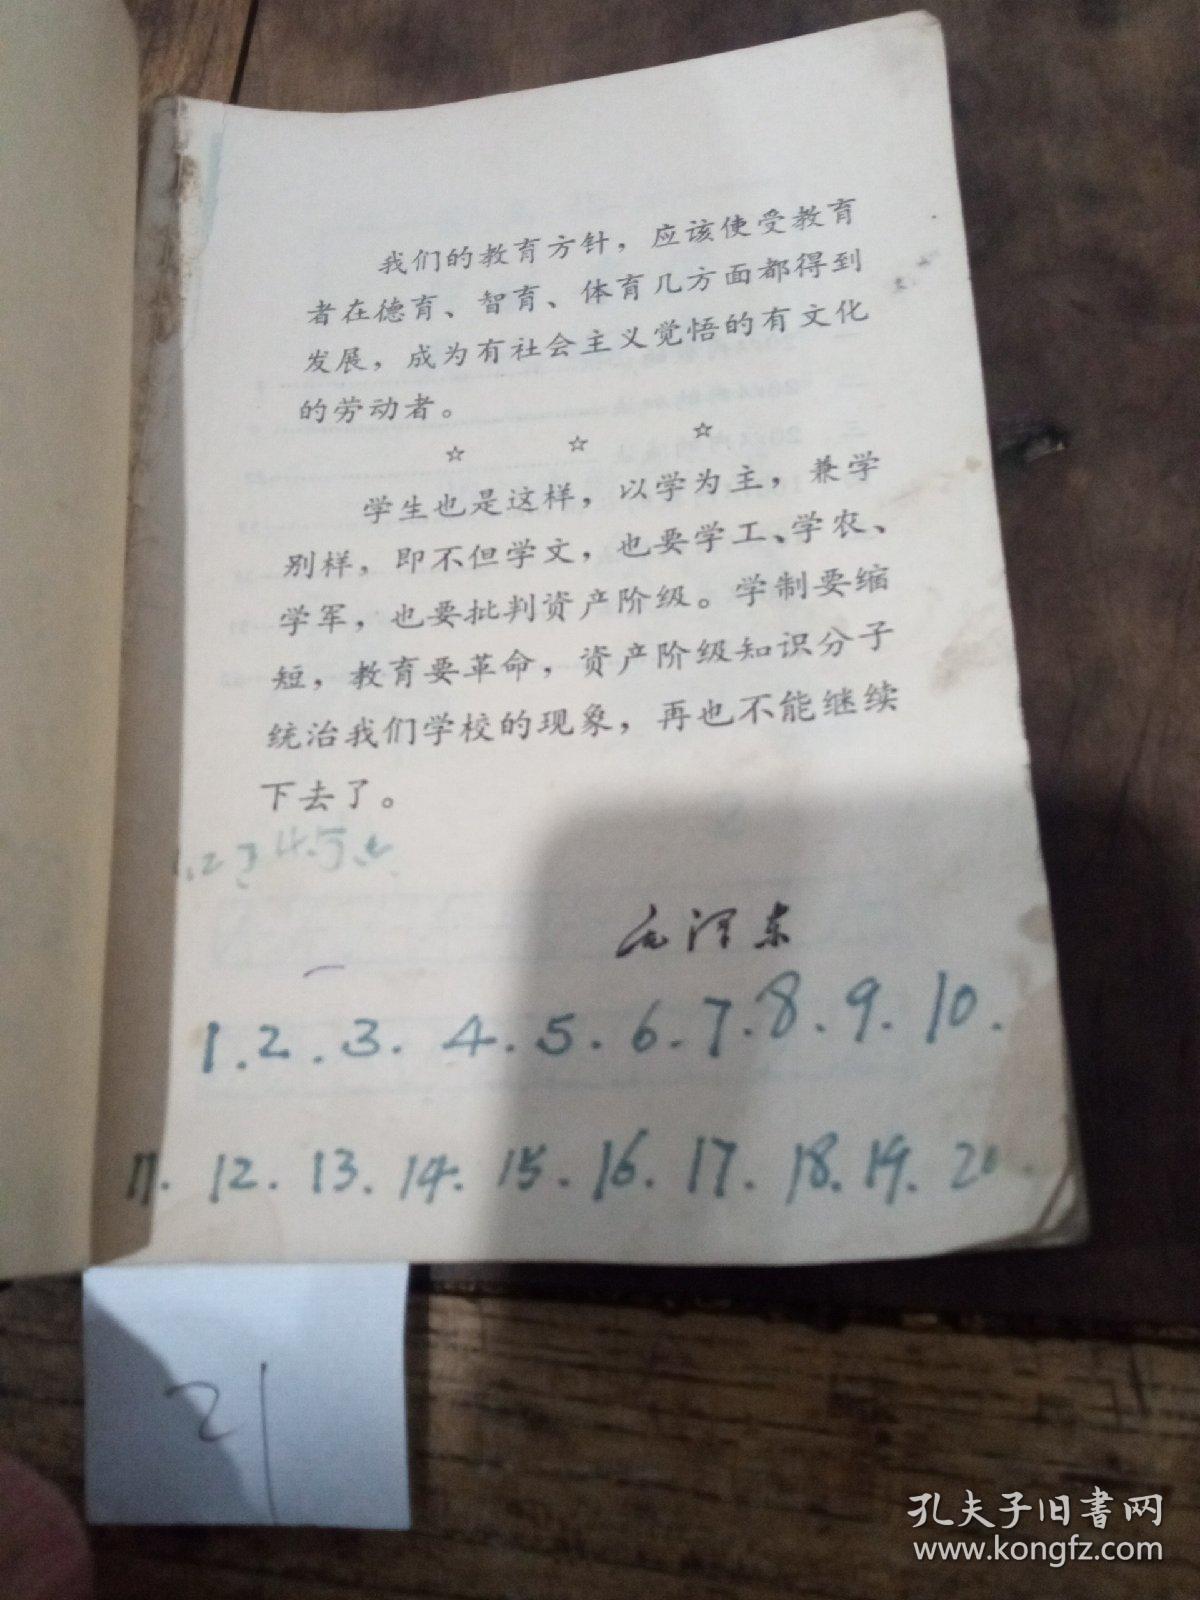 我们的教育方针，应该使受教育
者在德育、智育、体育几方面都得到
发展，成为有社会主义觉悟的有文化
的劳动者。
☆ ☆ ☆
学生也是这样，以学为主，兼学
别样，即不但学文，也要学工、学农、
学军，也要批判资产阶级。学制要缩
短，教育要革命，资产阶级知识分子
统治我们学校的现象，再也不能继续
下去了。
毛泽东
1.2.3.4.5.6.7.8.9.10.
11.12.13.14.15.16.17.18.19.20.
21
孔夫子旧书网
www.kongfz.com